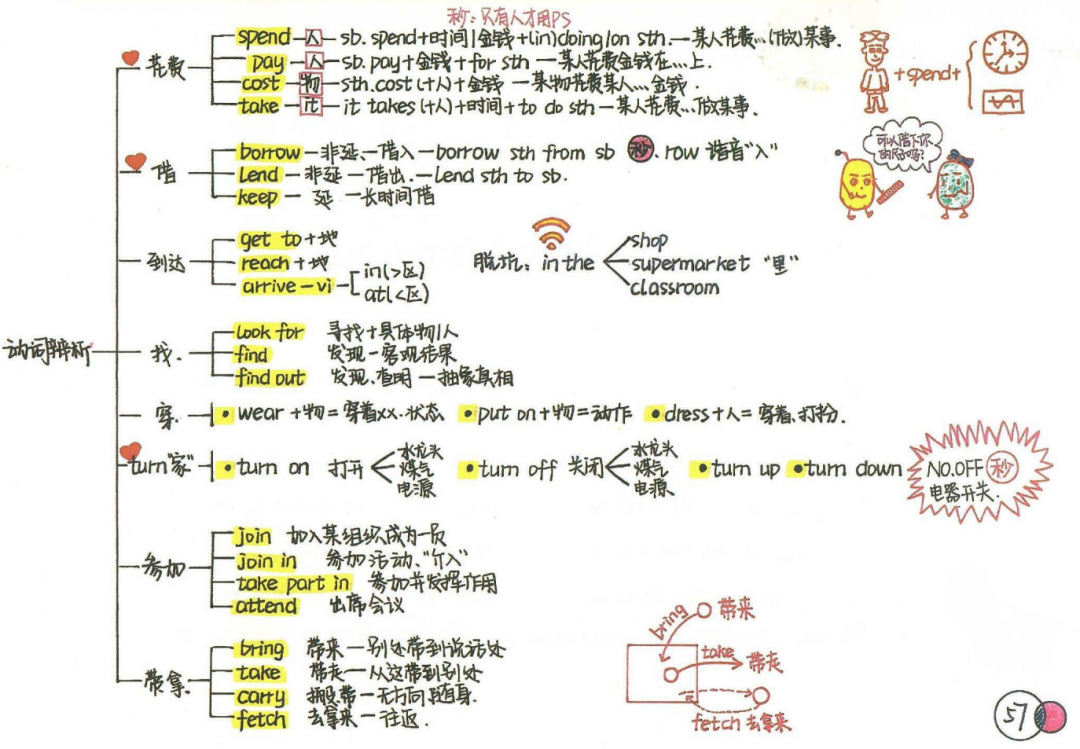 秒:只有人才用PS
动词辨析
花费
spend — 人 — sb. spend+时间/金钱+(in)doing/on sth. — 某人花费...(做)某事.
pay — 人 — sb. pay+金钱+for sth — 某人花费金钱在...上.
cost — 物 — sth. cost (+人)+金钱 — 某物花费某人...金钱.
take — it — it takes (+人)+时间+to do sth — 某人花费...做某事.
+spend+
借
borrow — 非延、— 借入 — borrow sth from sb 秒. row 谐音"入"
Lend — 非延 — 借出. — Lend sth to sb.
keep — 延 — 长时间借
可以借下你的
到达
get to + 地
reach + 地
arrive — vi
in(>区)
at(<区)
脱坑: in the
shop
supermarket "里"
classroom
找.
Look for 寻找+具体物/人
find 发现 — 客观结果
find out 发现、查明 — 抽象真相
穿.
• wear +物=穿着xx.状态 • put on+物=动作 • dress+人=穿着、打扮.
turn"家"
• turn on 打开
水龙头
煤气
电源
• turn off 关闭
水龙头
煤气
电源
• turn up • turn down
NO.OFF 秒
电器开关.
参加
join 加入某组织成为一员
join in 参加活动、"介入"
take part in 参加并发挥作用
attend 出席会议
带拿
bring 带来 — 别处带到说话处
take 带走 — 从这带到别处
carry 搬、带 — 无方向、随身.
fetch 去拿来 — 往返.
bring 带来
take 带走
fetch 去拿来
57